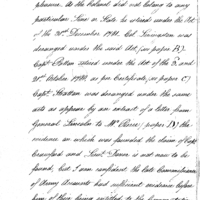 pleasure. As the Colonel did not belong to any
particular Line or State he retired under the Act
of the 31st December 1781. Col. Livermore was
deranged under the said Act, (see paper B).
Captn. Potter retired under the Act of the 3 and
21st October 1780, as per Certificate, (see paper C)
Captn. was deranged under the same
acts as appears by an extract of a letter from
General Lincoln to Mr. Pierce (paper D) the
evidence on which was founded the claim of Captn.
Crawford and Lieut. is not now to be
found, but I am confident the late Commissioner
of Army Accounts had sufficient evidence before
him of their being entitled to the Commutation